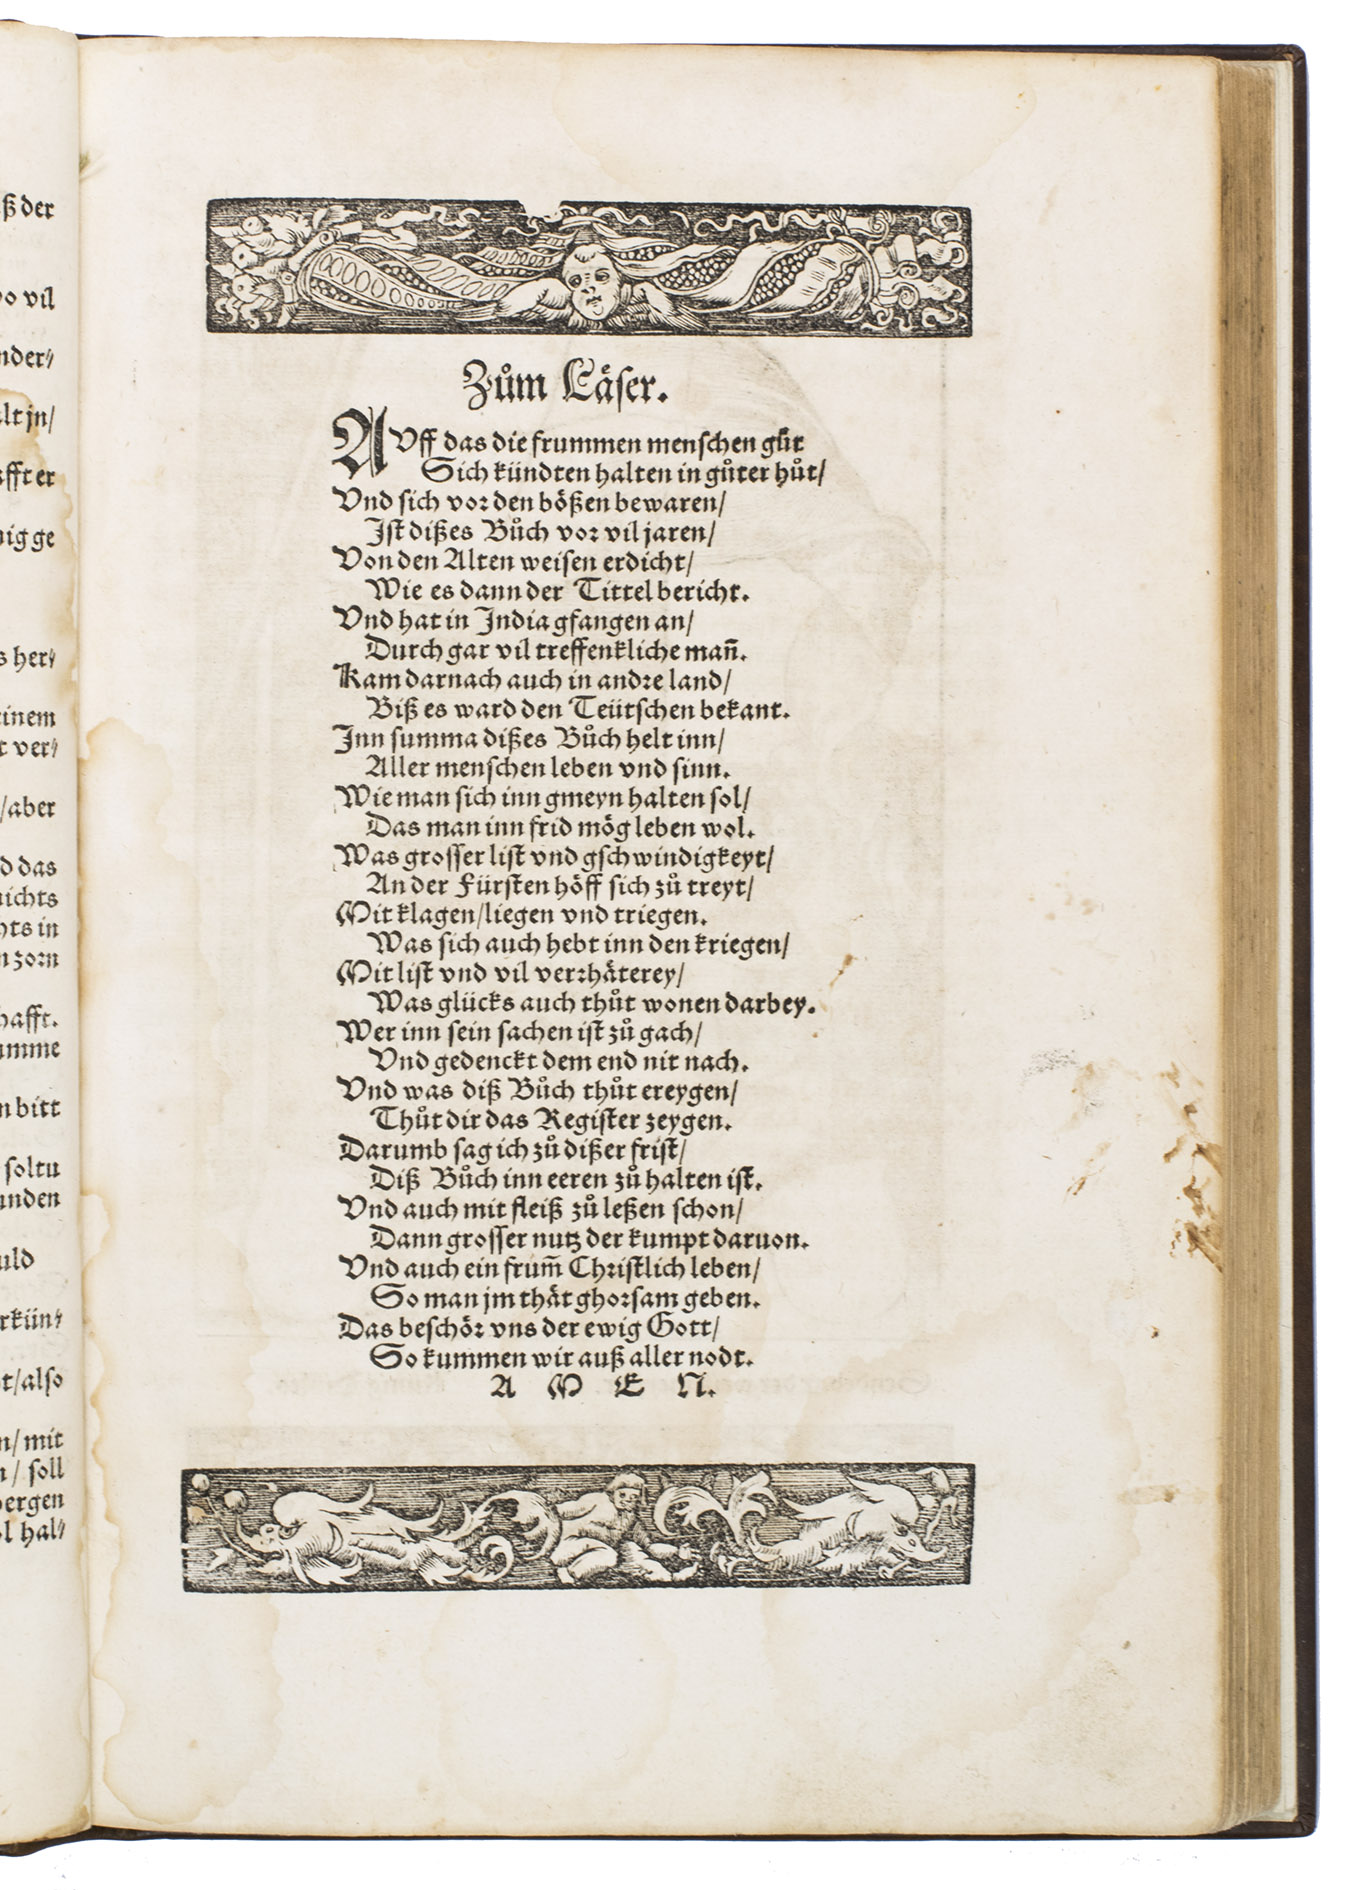 ß der
vo vil
nder⸗
alt jn/
afft er
nig ge
s her⸗
einem
t ver⸗
/aber
d das
nichts
hts in
n zorn
hafft.
umme
n bitt
soltu
unden
uld
rkün⸗
t/also
n/ mit
n/ soll
bergen
ol hal⸗
Zům Läser.
AVff das die frummen menschen gůt
Sich kündten halten in gůter hůt/
Vnd sich vor den bößen bewaren/
Ist dißes Bůch vor vil jaren/
Von den Alten weisen erdicht/
Wie es dann der Tittel bericht.
Vnd hat in India gfangen an/
Durch gar vil treffenkliche mañ.
Kam darnach auch in andre land/
Biß es ward den Teütschen bekant.
Inn summa dißes Bůch helt inn/
Aller menschen leben vnd sinn.
Wie man sich inn gmeyn halten sol/
Das man inn frid mög leben wol.
Was grosser list vnd gschwindigkeyt/
An der Fürsten höff sich zů treyt/
Mit klagen/liegen vnd triegen.
Was sich auch hebt inn den kriegen/
Mit list vnd vil verrhäterey/
Was glücks auch thůt wonen darbey.
Wer inn sein sachen ist zů gach/
Vnd gedenckt dem end nit nach.
Vnd was diß Bůch thůt ereygen/
Thůt dir das Register zeygen.
Darumb sag ich zů dißer frist/
Diß Bůch inn eeren zů halten ist.
Vnd auch mit fleiß zů leßen schon/
Dann grosser nutz der kumpt daruon.
Vnd auch ein frum̃ Christlich leben/
So man jm thät ghorsam geben.
Das beschör vns der ewig Gott/
So kummen wir auß aller nodt.
A M E N.